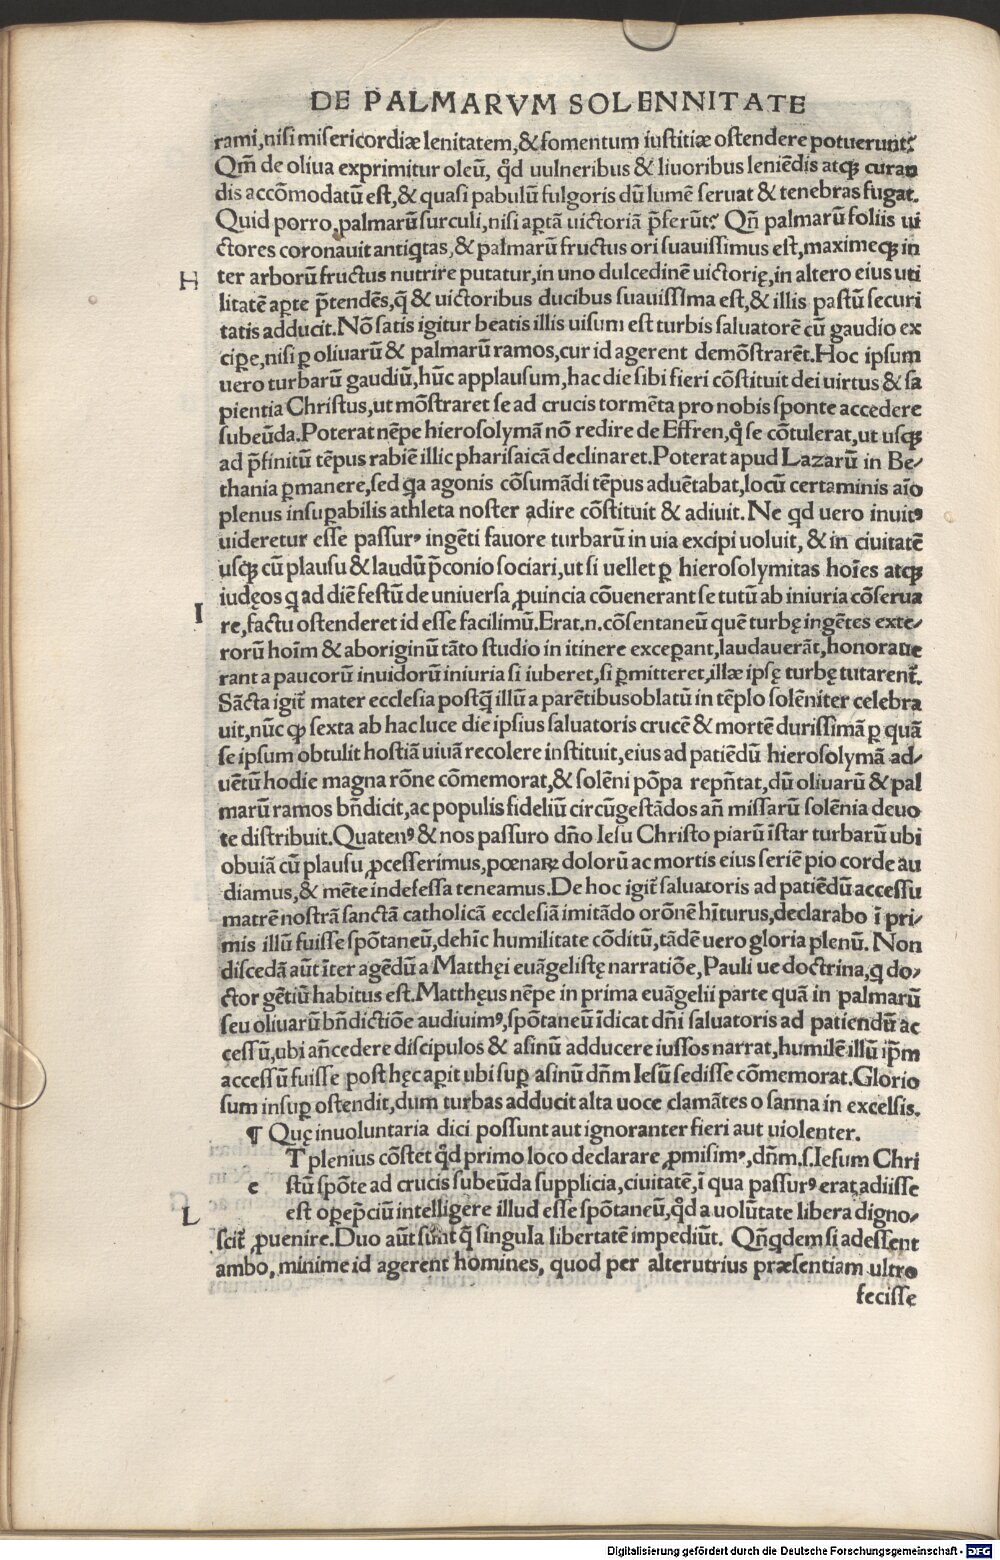 DE PALMARVM SOLENNITATE
rami, nisi misericordiæ lenitatem, & fomentum iustitiæ ostendere potuerunt?
Qm̃ de oliua exprimitur oleũ, qd̛ uulneribus & liuoribus leniẽdis atqꝫ curan
dis accõmodatũ est, & quasi pabulũ fulgoris dũ lumẽ seruat & tenebras fugat.
Quid porro, palmarũ surculi, nisi aꝑtã uictoriã p̃ferũt? Qñ palmarũ foliis ui
ctores coronauit antiq̃tas, & palmarũ fructus ori suauissimus est, maximeqꝫ in
H
ter arborũ fructus nutrire putatur, in uno dulcedinẽ uictorię, in altero eius uti
litatẽ aꝑte p̃tendẽs, q̃ & uictoribus ducibus suauissima est, & illis pastũ securi
tatis adducit. Nõ satis igitur beatis illis uisum est turbis saluatorẽ cũ gaudio ex
ciꝑe, nisi ꝑ oliuarũ & palmarũ ramos, cur id agerent demõstrarẽt. Hoc ipsum
uero turbarũ gaudiũ, hũc applausum, hac die sibi fieri cõstituit dei uirtus & sa
pientia Christus, ut mõstraret se ad crucis tormẽta pro nobis sponte accedere
subeũda. Poterat nẽpe hierosolymã nõ redire de Effren, q̊ se cõtulerat, ut usqꝫ
ad p̃finitũ tẽpus rabiẽ illic pharisaicã declinaret. Poterat apud Lazarũ in Be⸗
thania ꝑmanere, sed qa agonis cõsumãdi tẽpus aduẽtabat, locũ certaminis aĩo
plenus insuꝑabilis athleta noster adire cõstituit & adiuit. Ne qd uero inuitꝰ
uideretur esse passurꝰ ingẽti fauore turbarũ in uia excipi uoluit, & in ciuitatẽ
usqꝫ cũ plausu & laudũ p̃conio sociari, ut si uellet ꝑ hierosolymitas hoĩes atqꝫ
iudęos q ad diẽ festũ de uniuersa ꝓuincia cõuenerant se tutũ ab iniuria cõserua
I
re, factu ostenderet id esse facilimũ. Erat.n.cõsentaneũ quẽ turbę ingẽtes exte⸗
rorũ hoĩm & aboriginũ tãto studio in itinere exceꝑant, laudauerãt, honoraue
rant a paucorũ inuidorũ iniuria si iuberet, si ꝑmitteret, illæ ipsę turbę tutarent̃.
Sãcta igit̃ mater ecclesia postq̃ illũ a parẽtibusoblatũ in tẽplo solẽniter celebra
uit, nũc qꝫ sexta ab hac luce die ipsius saluatoris crucẽ & mortẽ durissimã ꝑ quã
se ipsum obtulit hostiã uiuã recolere instituit, eius ad patiẽdũ hierosolymã ad⸗
uẽtũ hodie magna rõne cõmemorat, & solẽni põpa repñtat, dũ oliuarũ & pal
marũ ramos bñdicit, ac populis fideliũ circũgestãdos añ missarũ solẽnia deuo
te distribuit. Quatenꝰ & nos passuro dño Iesu Christo piarũ ĩstar turbarũ ubi
obuiã cũ plausu ꝓcesserimus, pœnaꝝ dolorũ ac mortis eius seriẽ pio corde au
diamus, & mẽte indefessa teneamus. De hoc igit̃ saluatoris ad patiẽdũ accessu
matrẽ nostrã sanctã catholicã ecclesiã imitãdo orõnẽ hĩturus, declarabo ĩ pri⸗
mis illũ fuisse spõtaneũ, dehĩc humilitate cõditũ, tãdẽ uero gloria plenũ. Non
discedã aũt ĩter agẽdũ a Matthęi euãgelistę narratiõe, Pauli ue doctrina, q do⸗
ctor gẽtiũ habitus est. Matthęus nẽpe in prima euãgelii parte quã in palmarũ
seu oliuarũ bñdictiõe audiuimꝰ, spõtaneũ ĩdicat dñi saluatoris ad patiendũ ac
cessũ, ubi añcedere discipulos & asinũ adducere iussos narrat, humilẽ illũ ip̃m
accessũ fuisse post hęc aꝑit ubi suꝑ asinũ dñm Iesũ sedisse cõmemorat. Glorio
sum insuꝑ ostendit, dum turbas adducit alta uoce clamãtes o sanna in excelsis.
¶ Quę inuoluntaria dici possunt aut ignoranter fieri aut uiolenter.
T plenius cõstet qd̛ primo loco declarare ꝓmisimꝰ, dñm.s.Iesum Chri
e stũ spõte ad crucis subeũda supplicia, ciuitatẽ, ĩ qua passurꝰ erat, adiisse
L
est oꝑep̃ciũ intelligere illud esse spõtaneũ, qd̛ a uolũtate libera digno⸗
scit̃ ꝓuenire. Duo aũt sunt q̃ singula libertatẽ impediũt. Qñqdem si adessent
ambo, minime id agerent homines, quod per alterutrius præsentiam ultro
fecisse
Digitalisierung gefördert durch die Deutsche Forschungsgemeinschaft - DFG